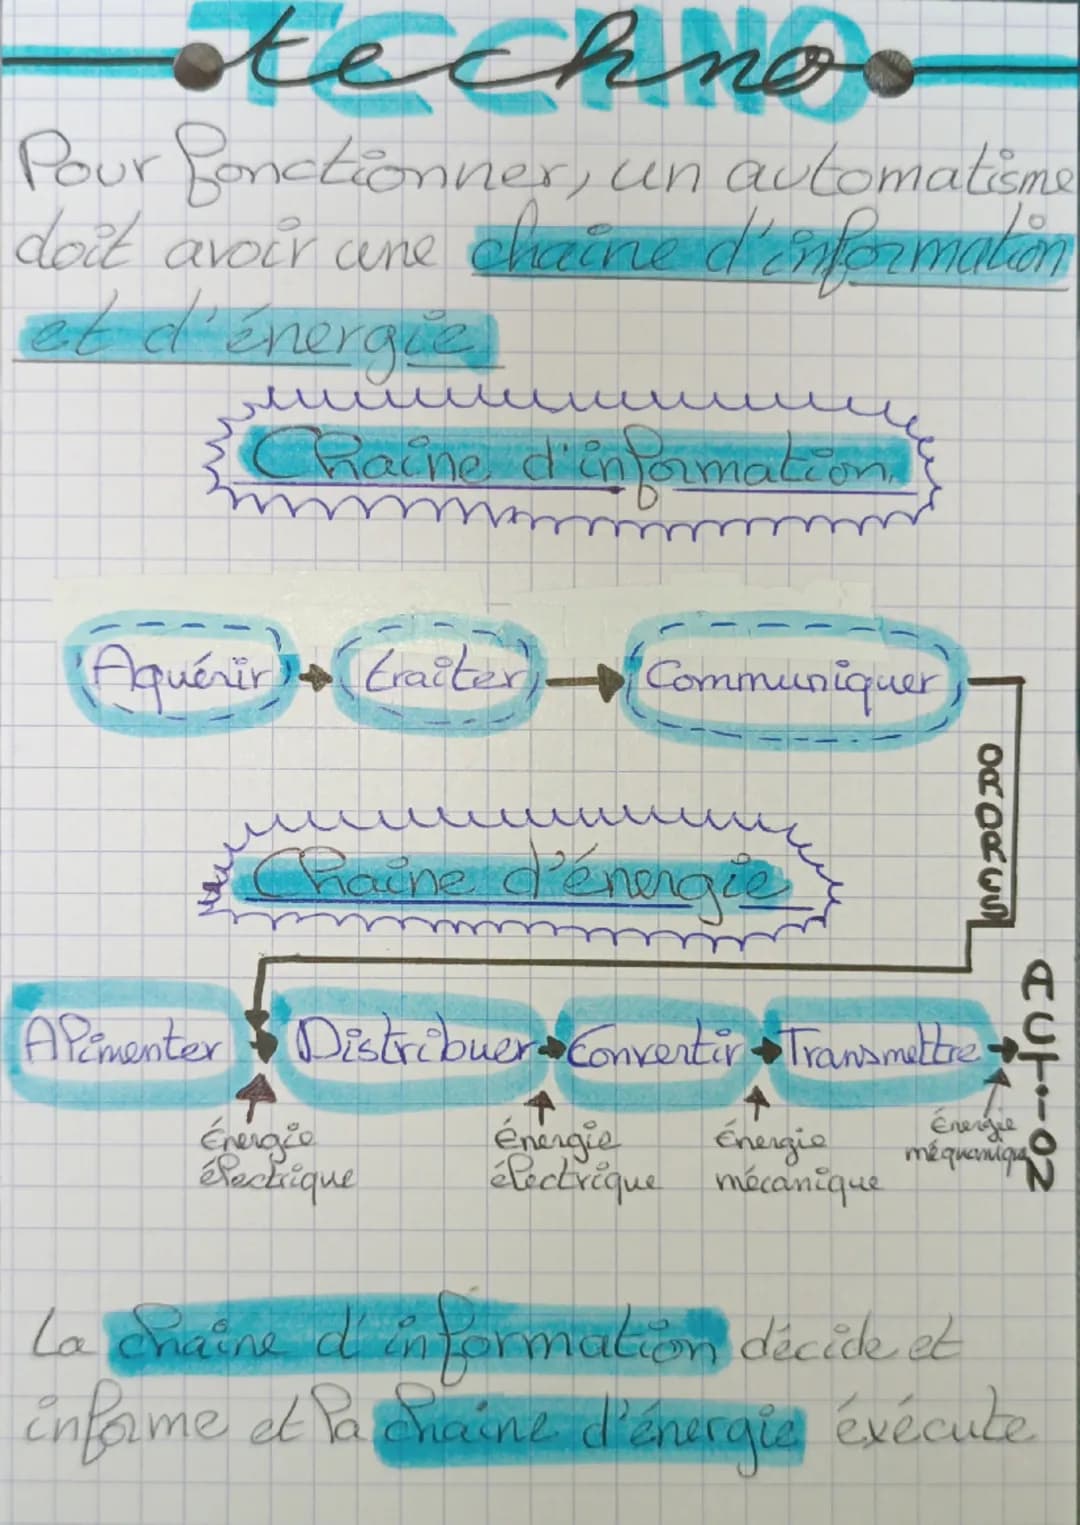 TECHNO
techno
Pour fonctionner, un automatisme
doit avoir une chaîne d'information
et d'énergie
Chaîne d'information.
Aquérir traiter Communiquer
ORDRES
Chaîne d'énergie
Alimenter Distribuer Convertir Transmettre
ACTION
Énergie
électrique
Énergie
électrique
Énergie
mécanique
Énergie
méquanique
La chaîne d'information décide et
informe et la chaîne d'énergie éxécute